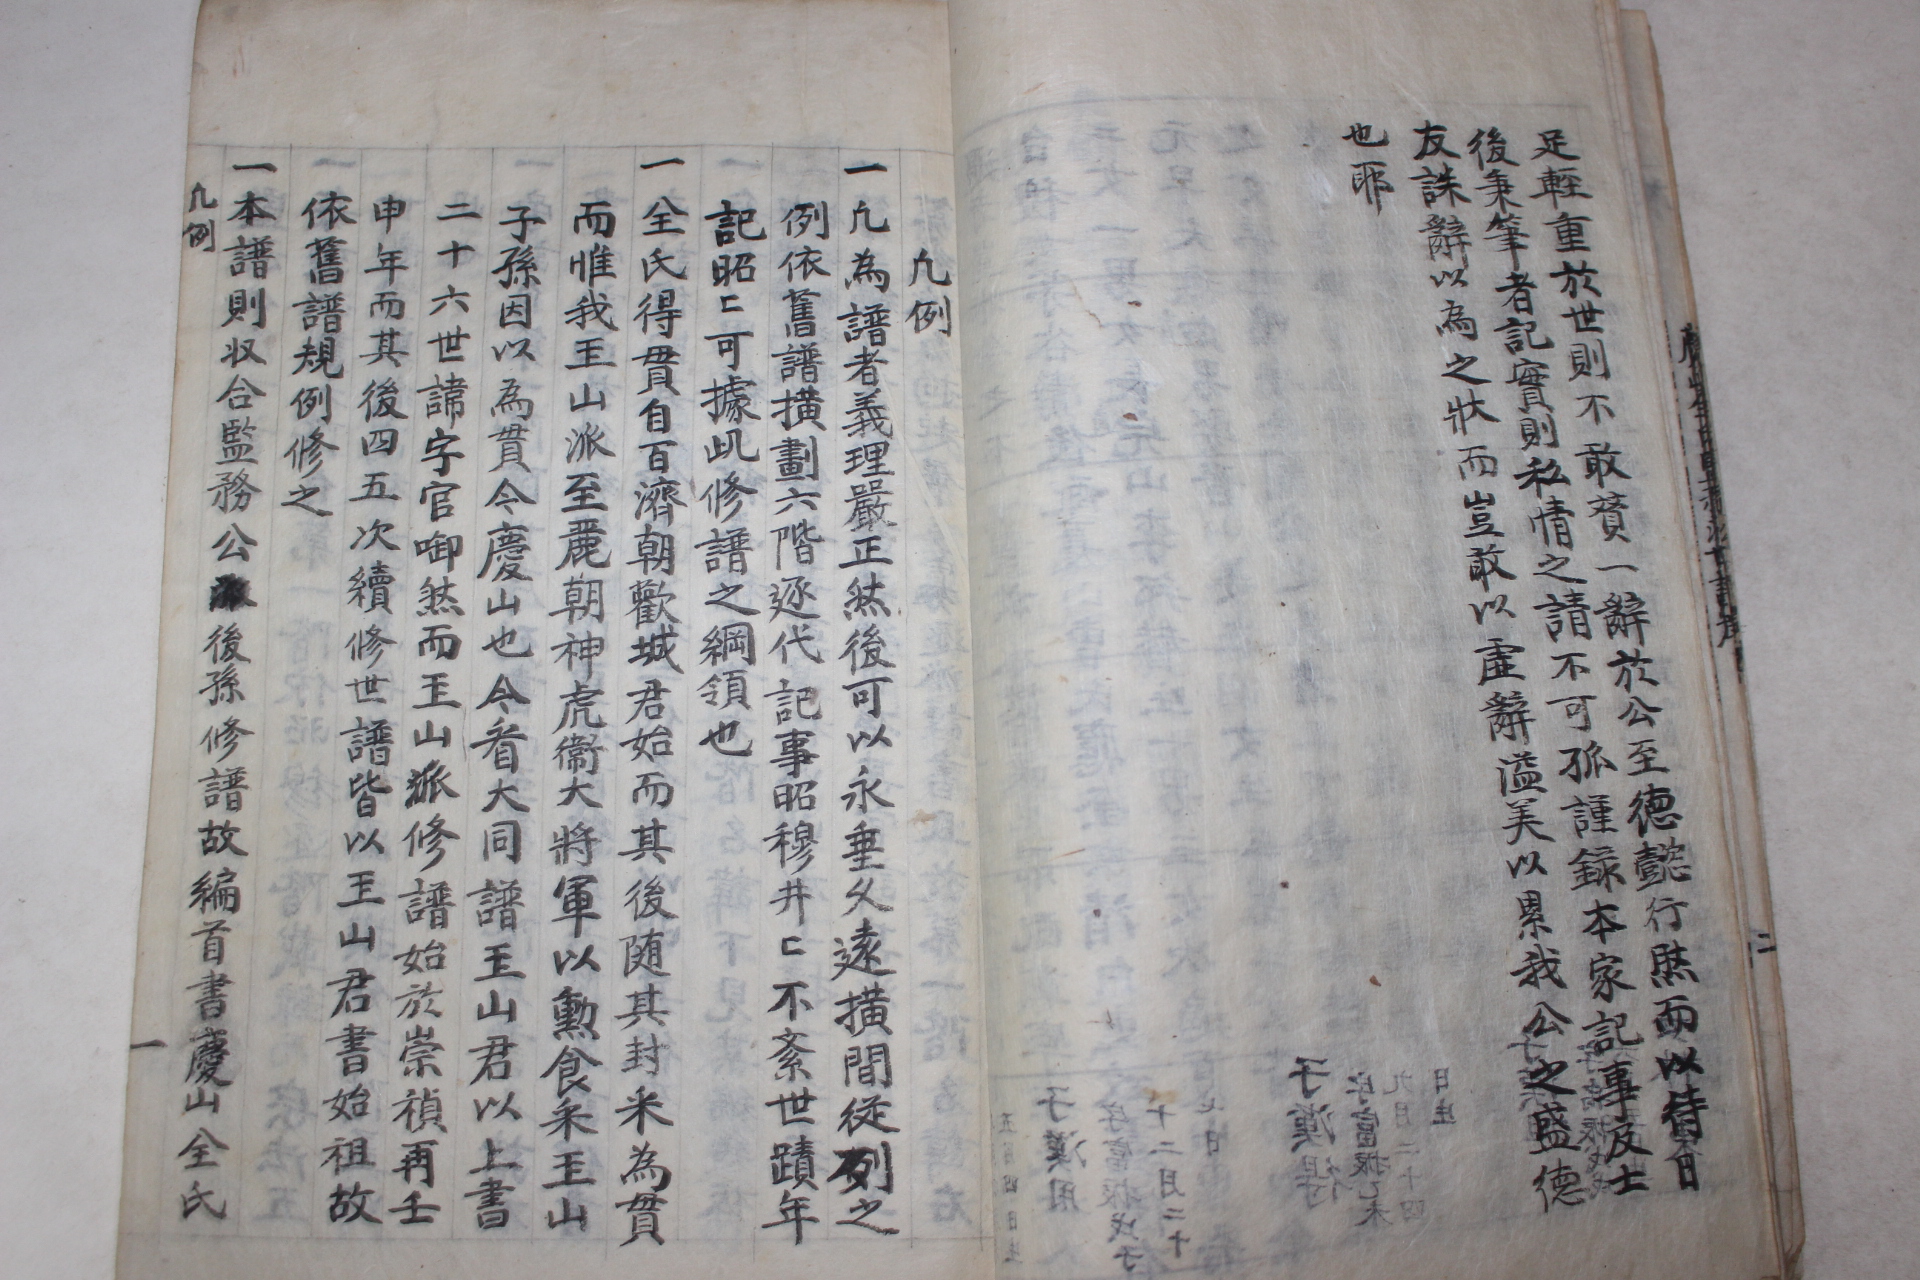 足輕重於世則不敢贅一辭於公至德懿行然而以待日
後秉筆者記實則私情之請不可孤謹錄本家記事及士
友誄辭以為之狀而豈敢以虛辭溢美以累我公之盛德
也耶
凡例
一凡為譜者義理嚴正然後可以永垂久遠橫間從列之
例依舊譜橫劃六階逐代記事昭穆井〻不紊世蹟年
記昭〻可據此修譜之綱領也
一全氏得貫自百濟朝歡城君始而其後隨其封采為貫
而惟我王山派至麗朝神虎衛大將軍以勳食采王山
子孫因以為貫今慶山也今看大同譜王山君以上書
二十六世諱字官啣然而王山派修譜始於崇禎再壬
申年而其後四五次續修世譜皆以王山君書始祖故
依舊譜規例修之
一本譜則収合監務公派後孫修譜故編首書慶山全氏
凡例
一